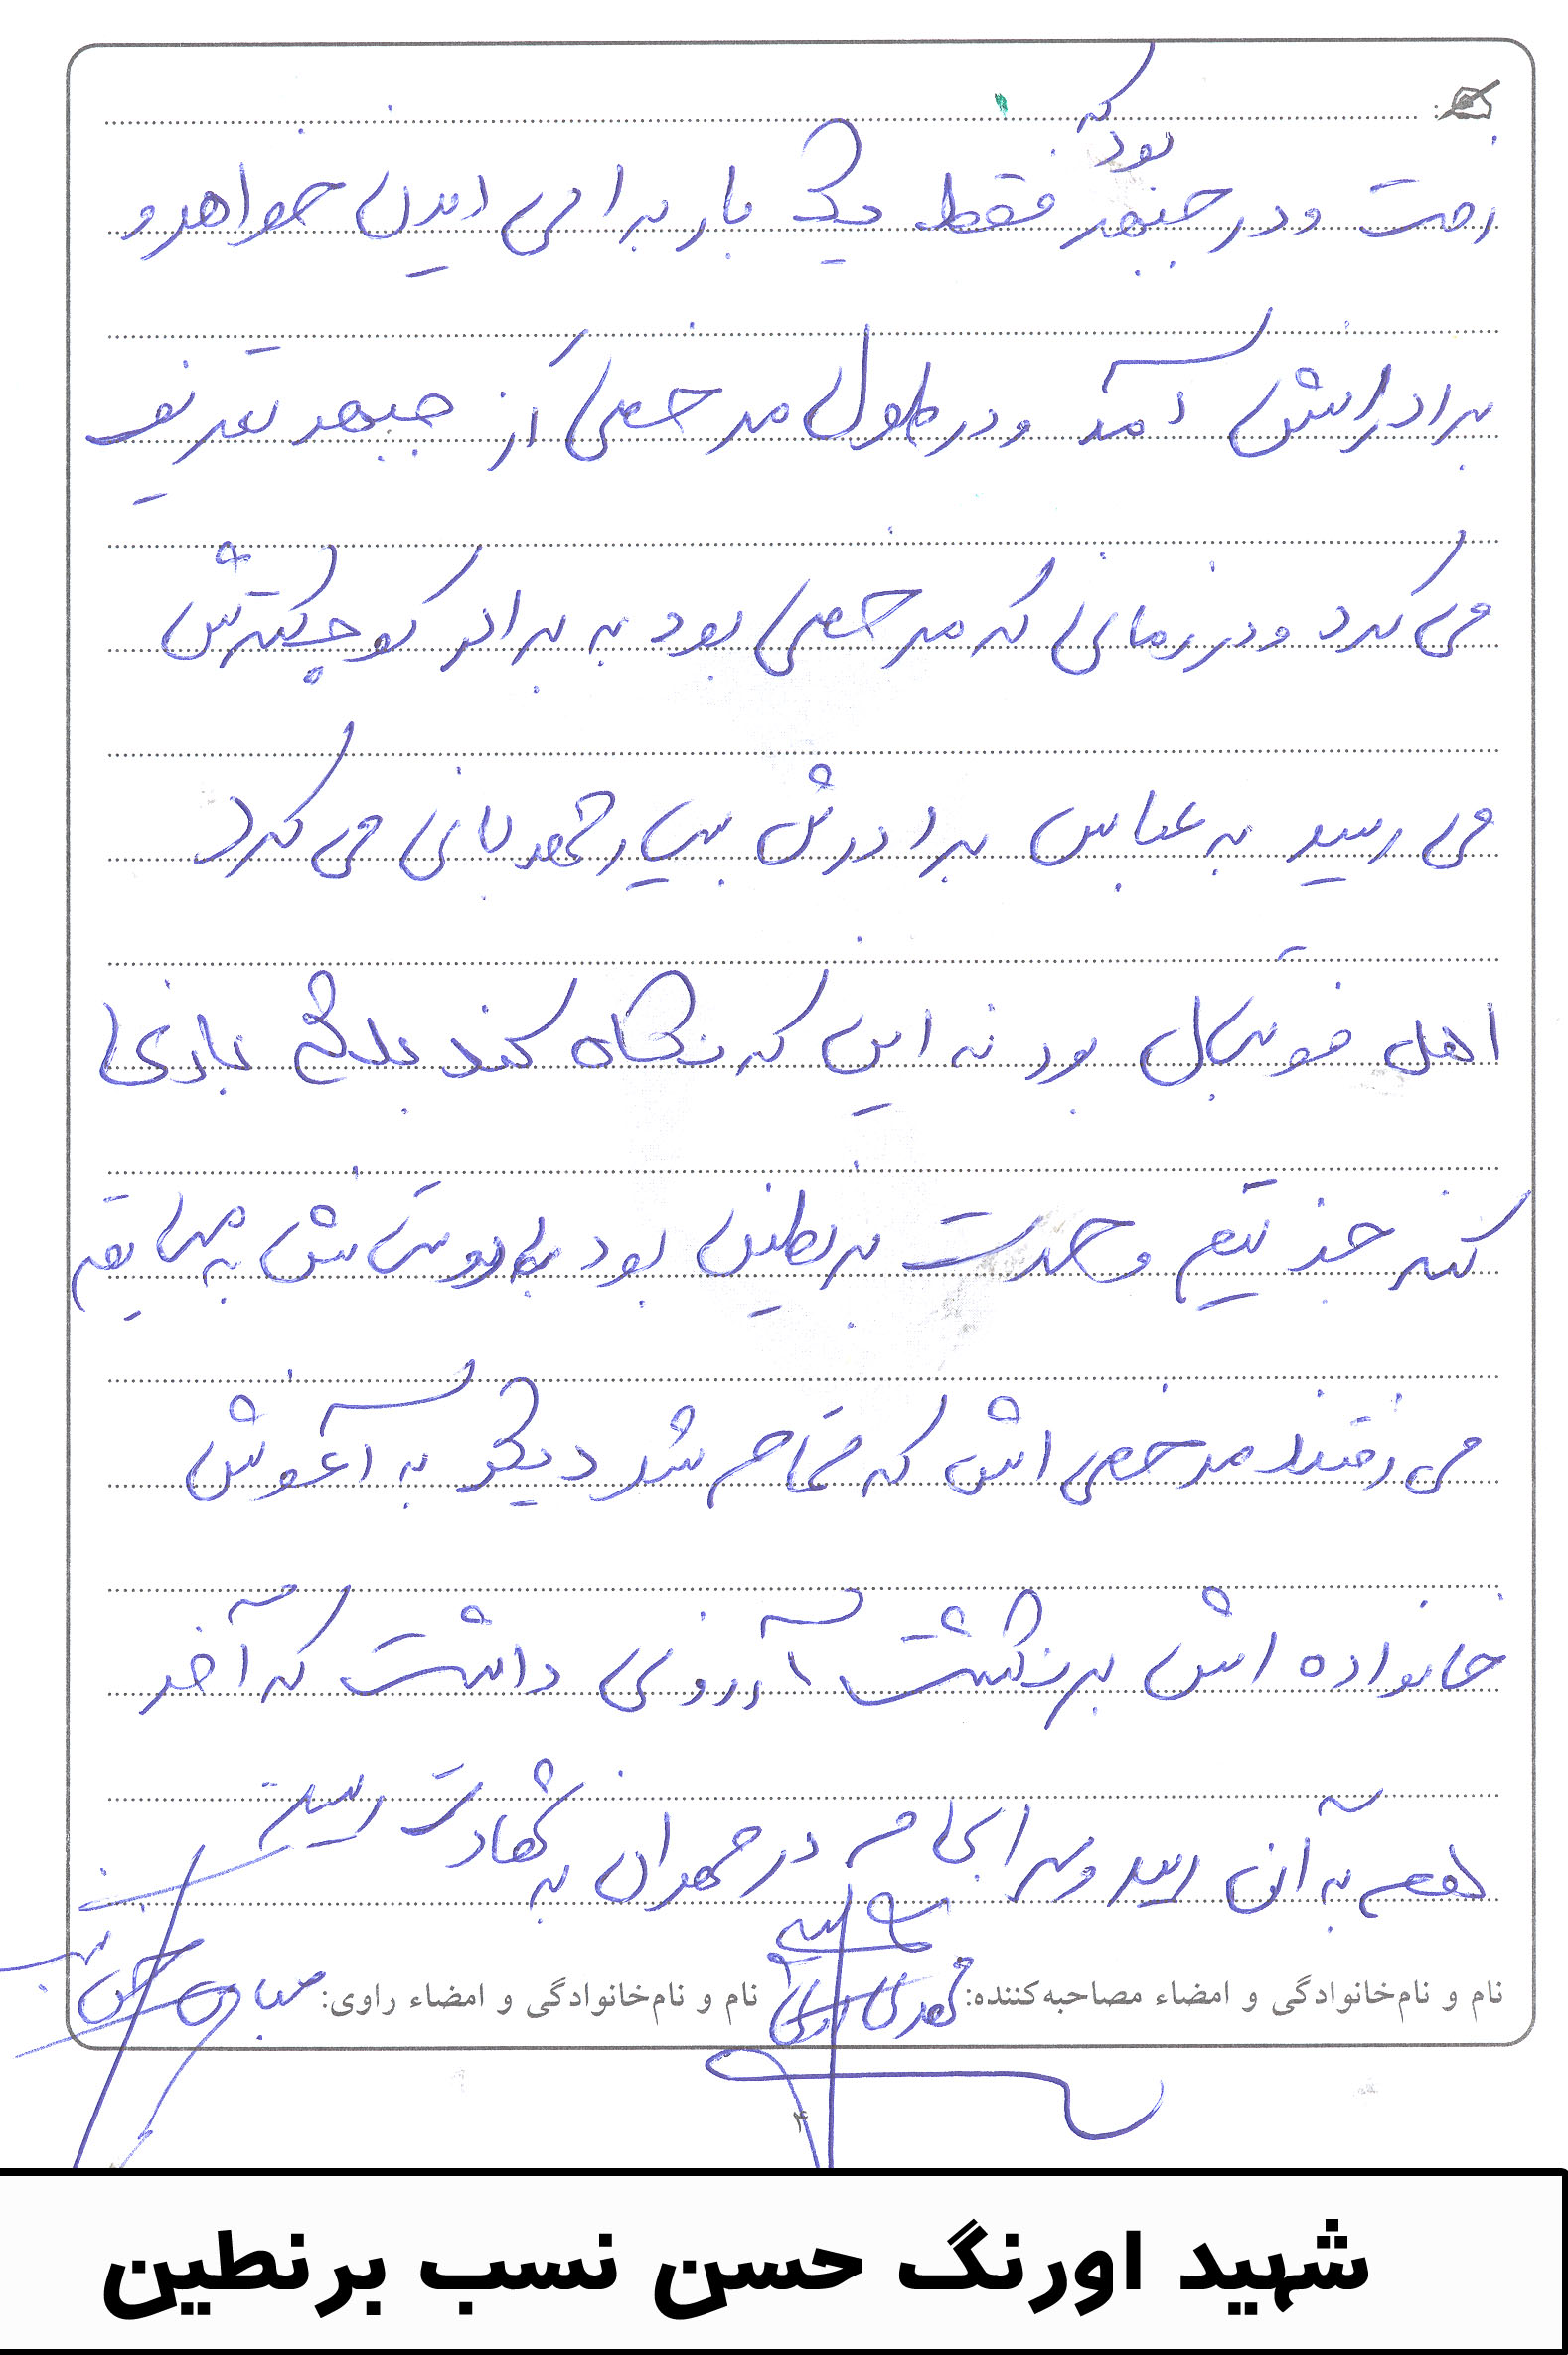 بود که
رفت و در جبهه فقط یک بار برای دیدن خواهر و
برادرانش آمد و در طول مرخصی از جبهه تعریف
می کرد و در زمانی که مرخصی بود به برادر کوچکترش
می رسید به عباس برادرش بسیار مهربانی می کرد
اهل فوتبال بود نه این که نگاه کند بلکه بازی
کند جز تیم وحدت برنطین بود با دوستانش به مسابقه
می رفتند مرخصی اش که تمام شد دیگر به آغوش
خانواده اش برنگشت آرزوی داشت که آخر
هم به آن رسید و سرانجام در مهران به شهادت رسید
نام و نام‌خانوادگی و امضاء مصاحبه‌کننده:
نام و نام‌خانوادگی و امضاء راوی:
۴
شهید اورنگ حسن نسب برنطین